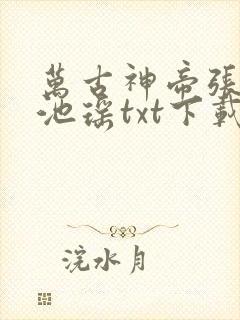 萬古神帝張
池瑤txt下載
浣水月